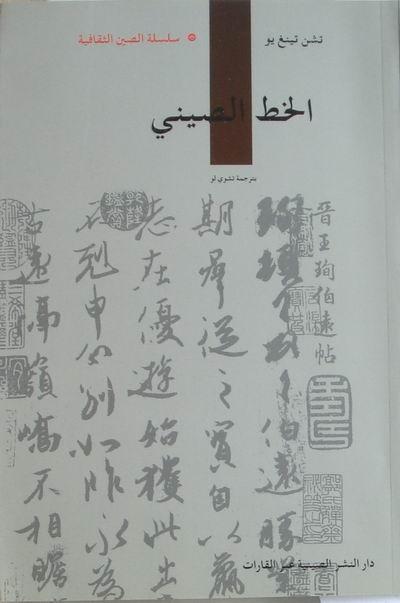 تشن تينغ يو
سلسلة الصين الثقافية
الخط الصيني
بترجمة تشوي لو
晋王珣伯远帖
珣頓首頓首伯遠勝業
期群從之寶自以羸
志在優遊始獲此出
不剋申分別如昨永為
古遠隔嶺嶠不相瞻
دار النشر الصينية عبر القارات